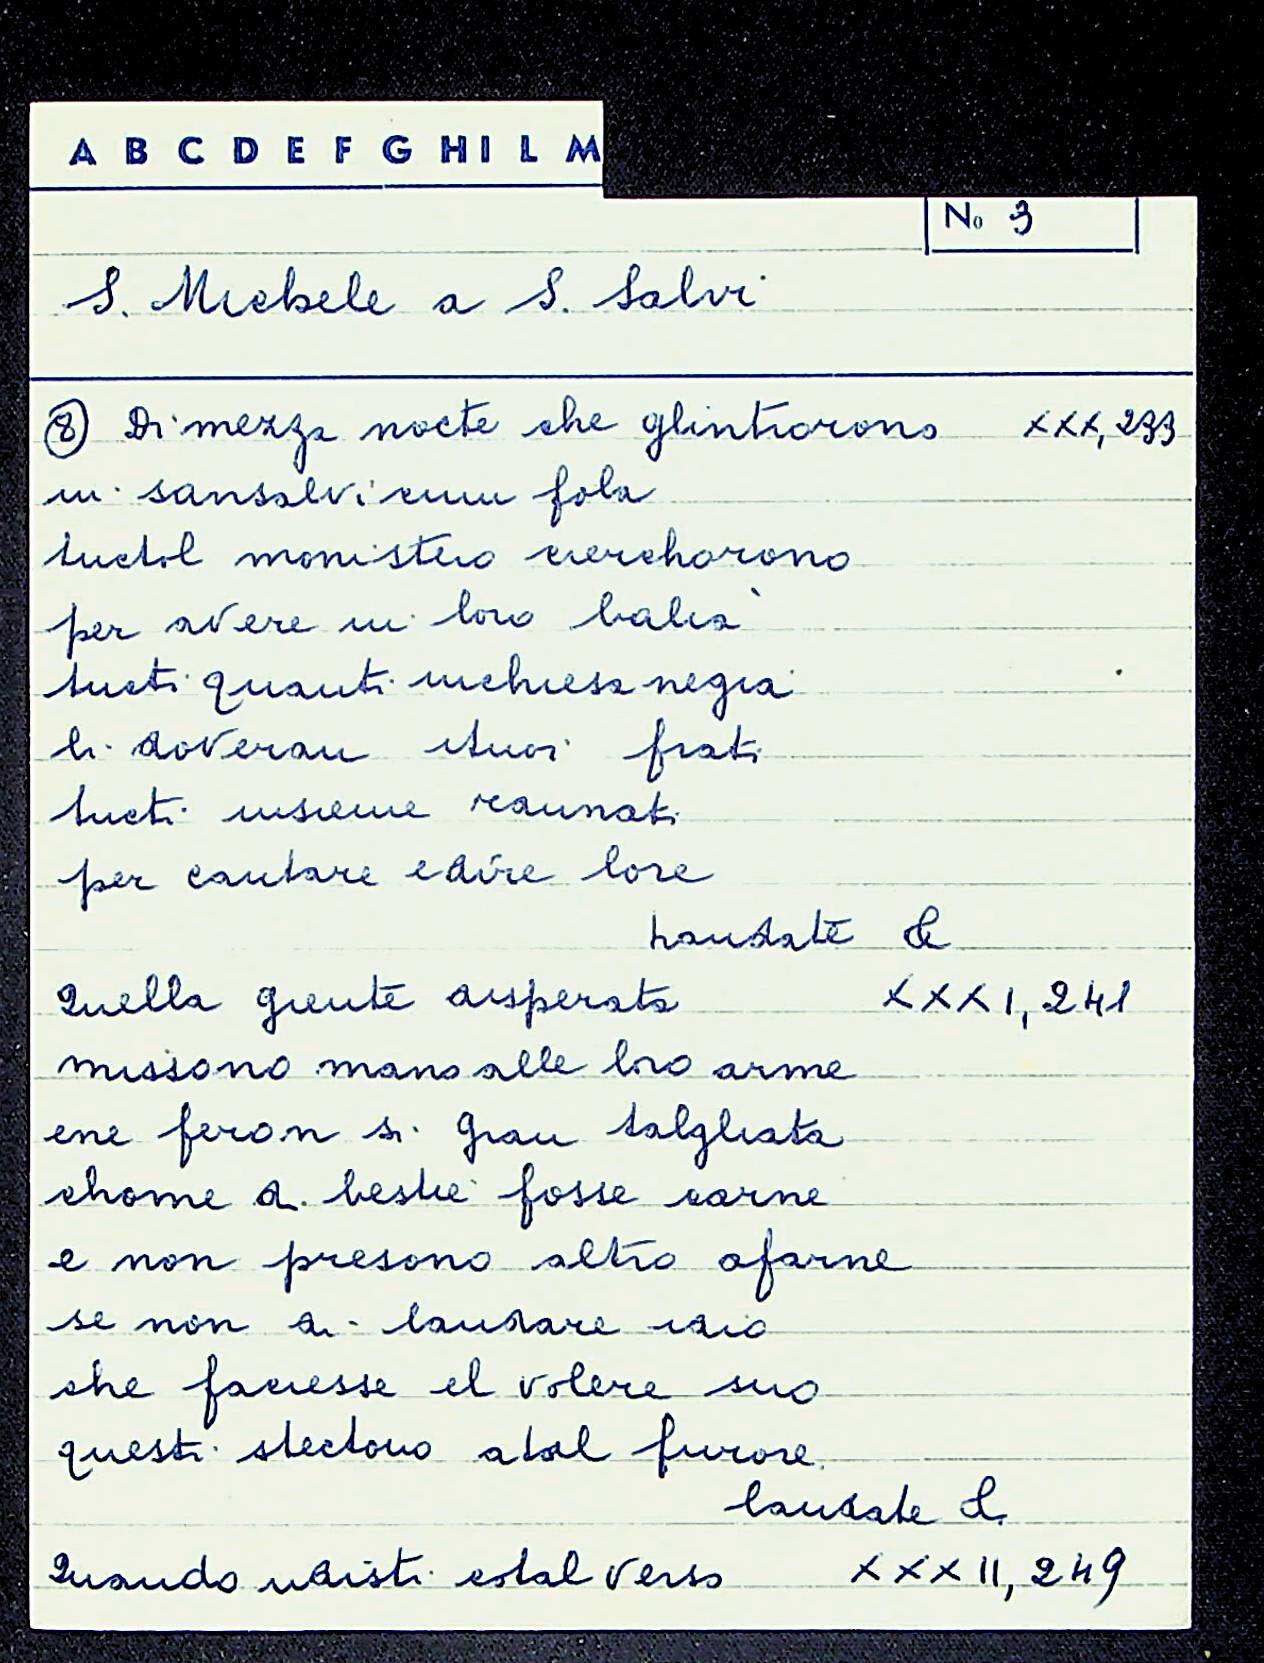 A B C D E F G H I L M
No 3
S. Michele a S. Salvi
8 Di mezza nocte che glintrorono XXX, 233
in sansalvi cum fola
tuctol monistero ciercharono
per avere in loro balia
tucti quanti inchiesa negia
li doveran ituoi frati
tucti insieme raunati
per cantare edire lore
Laudate &
Quella giente disperata XXXI, 241
missono mano alle loro arme
ene feron si gran talgliata
chome di bestie fosse carne
e non presono altro afarne
se non di laudare idio
che faciesse el volere suo
questi stectono atal furore
laudate &
Quando udisti cotal verso XXXII, 249